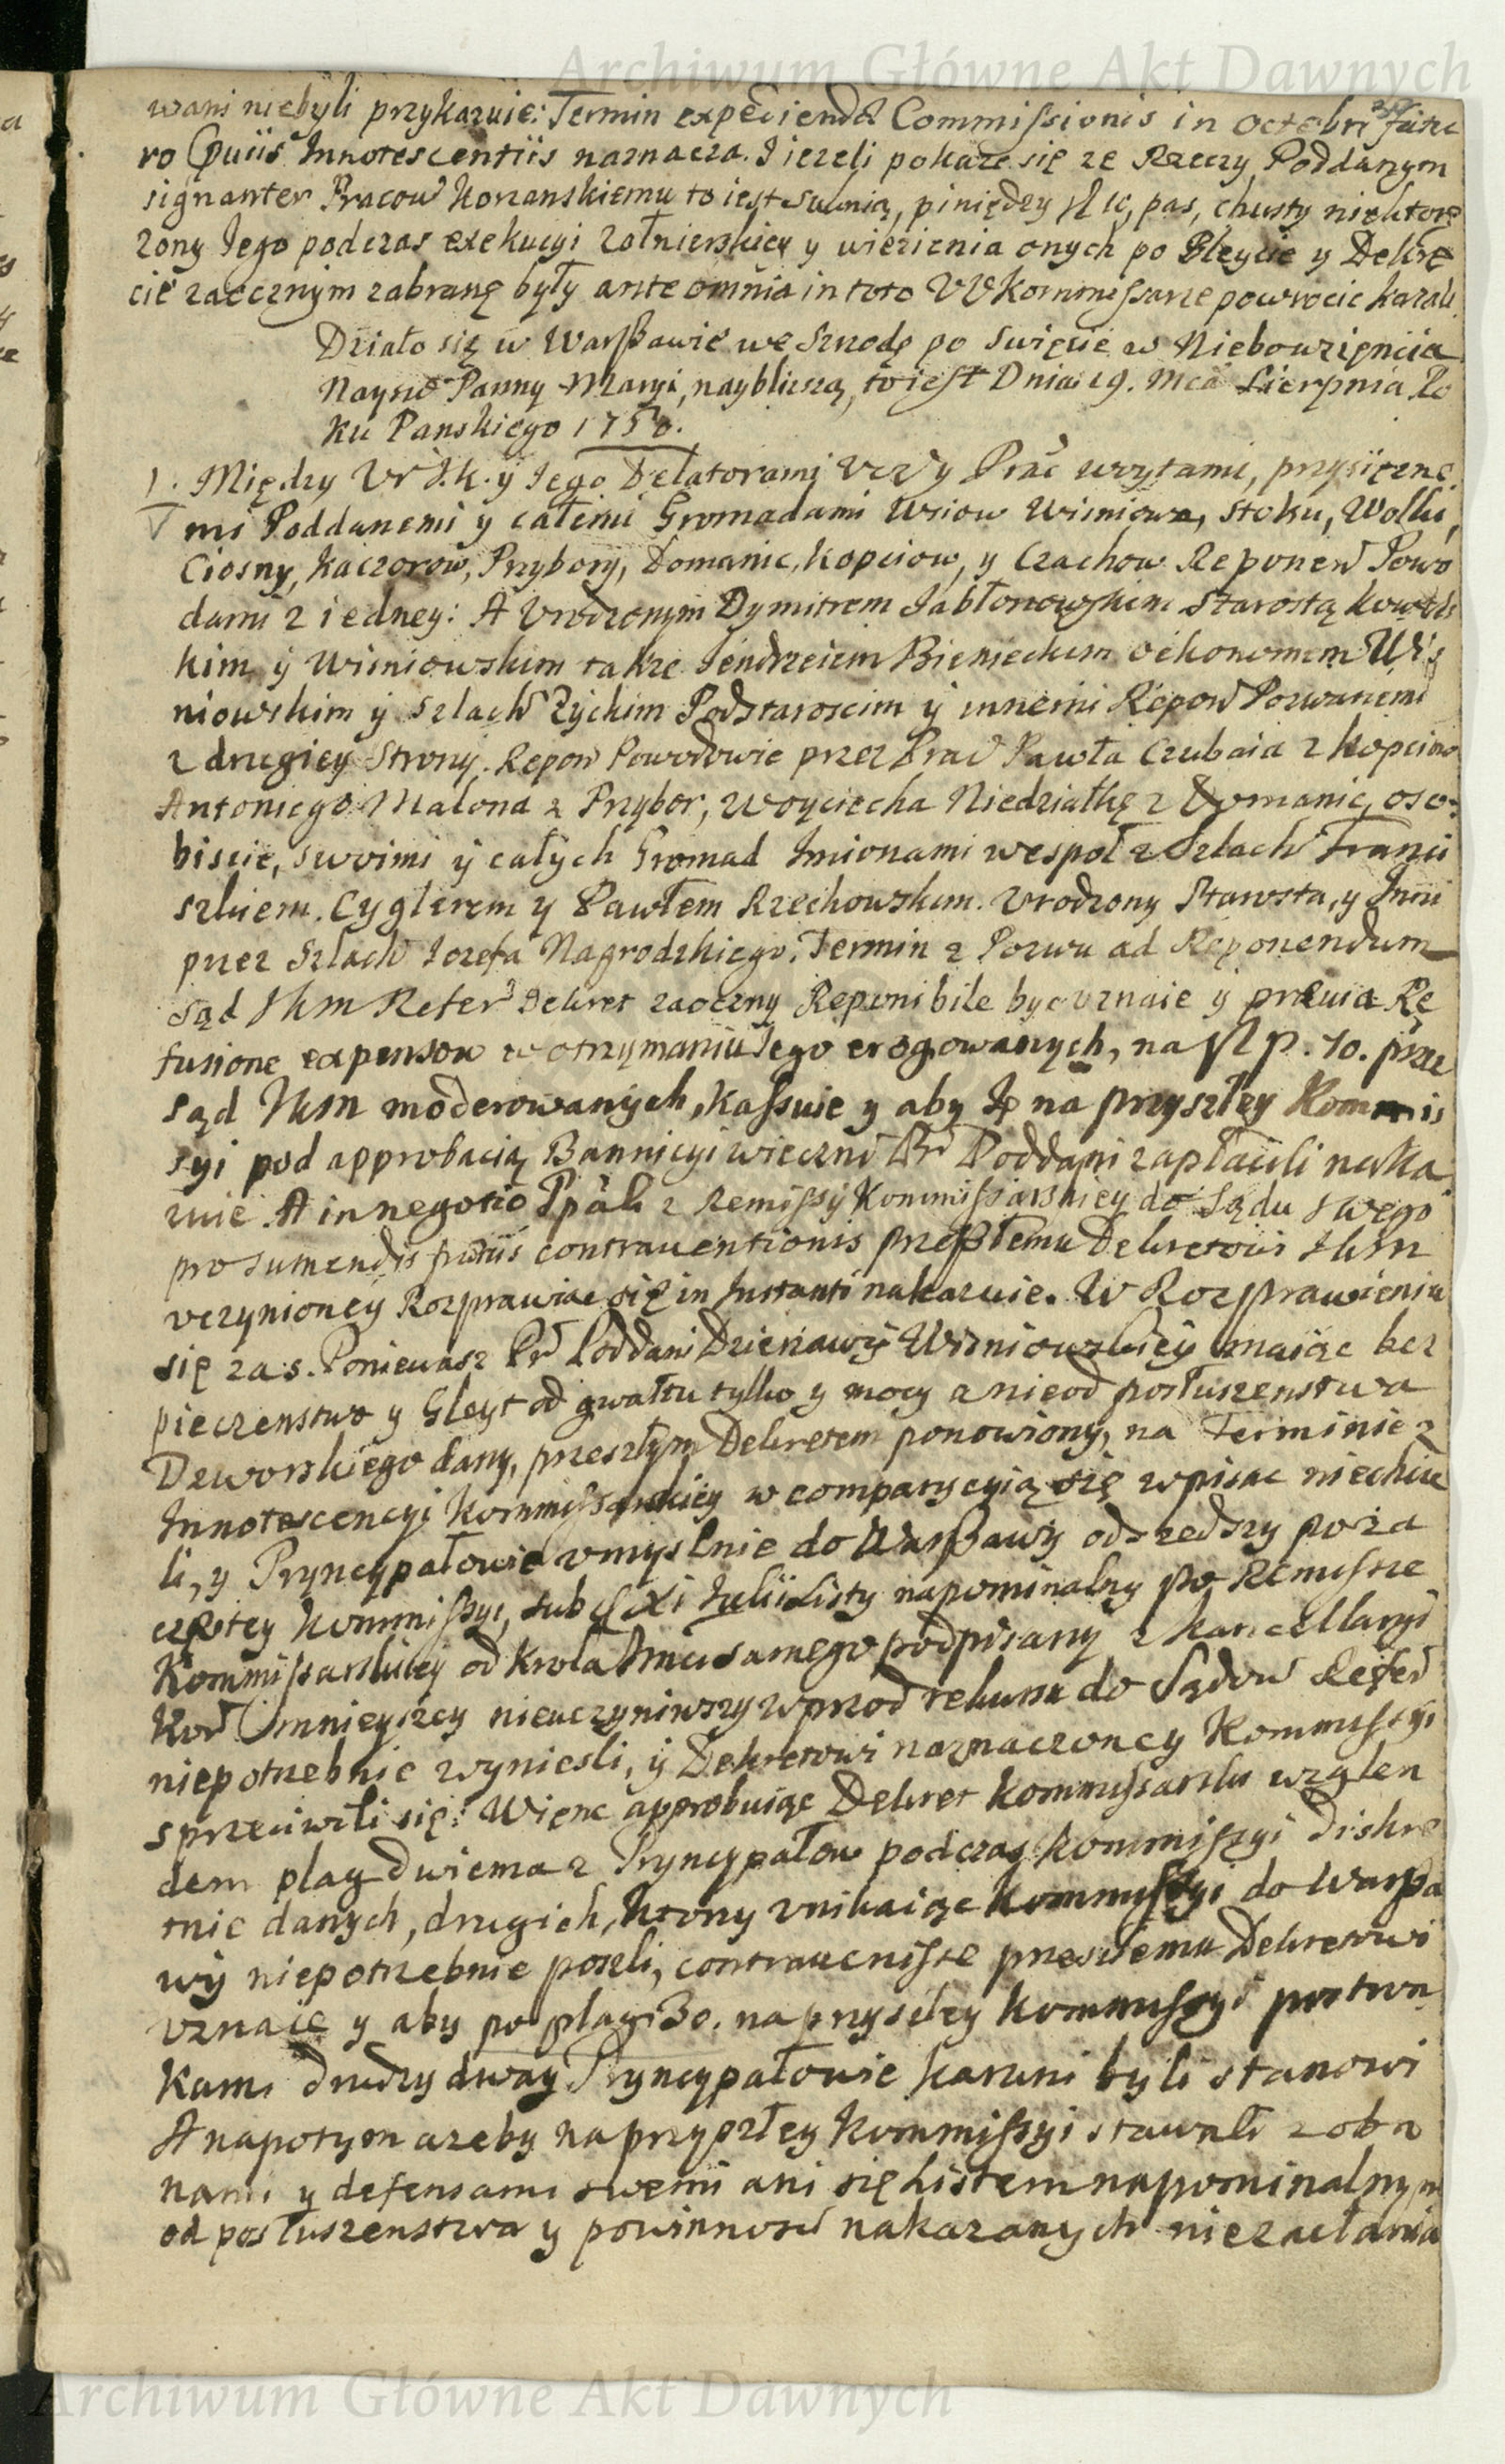 Archiwum Główne Akt Dawnych
wani niebyli przykazuie: Termin expediendæ Commissionis in Octobri futu
ro Innotescentiis naznacza. Jezeli pokaze się ze Rzeczy Poddanym
signanter Pracow Korzanskiemu to iest suknią, piniędzy pas, chusty niektore
zony Jego podczas exekucyi Zołnierskiey y więzienia onych po Gleycie y Dekre
cie zaocznym zabranę były ante omnia in toto VV Kommissarze powrocic kazali.
Działo się w Warszawie we Szrodę po Swięcie w Niebowzięncia
Nayswˢ Panny Maryi, naybliszą, to iest Dnia 19. Mca Sierpnia Ro
ku Panskiego 1750.
1. Między Vr J.K. y Jego Delatorami Vcz y Prac woytami, przysięzne
mi Poddanemi y całemi Gromadami Wsiow Wisniowa, Stoku, Wolki,
Ciosny, Kaczorow, Przybory, Domanic, Kopciow, y Czachow Reponen Powo
dami z iedney: A Vrodzonym Dymitrem Jabłonowskim Starostą Kowels
kim y Wisniowskim takze Jendrzeiem Bienieckim oekonomem Wis
niowskim y Szlach Zyckim Podstaroscim y innemi Repon Pozwanemi
z drugiey Strony. Repon Powodowie przez Prac Pawła Czubaia z Kopciow
Antoniego Malona z Przybor, Woyciecha Niedziałkę z Domanic, oso-
biscie, swoimi y całych Gromad Imionami wespoł z Szlach Franci
szkiem Cyglerem y Pawłem Rzechowskim. Vrodzony Starosta, y Inni
przez Szlach Jozefa Nagrodzkiego. Termin z Pozwu ad Reponendum
Sąd JKM Refer Dekret zaoczny Reponibile byc vznaie y prævia Re
fusione expensow w otrzymaniu Jego erogowanych, na Zł p. 10. przez
Sąd JKM moderowanych, kassuie y aby Je na przyszłey Kommis
syi pod approbacią Bannicyi wieczney Pr Poddani zapłacili naka
zuie. A in negotio Ppali z Remissy Kommissarskiey do Sądu swego
pro sumendis pænis contraventionis przeszłemu Dekretowi JKM
vczynioney Rozprawiac się in Instanti nakazuie. W Rozprawieniu
się zas. Poniewasz Pr Poddani Dzierzawy Wisniowskiey maiąc bez
pieczenstwo y Gleyt od gwałtu tylko y mocy a nieod posłuszenstwa
Dworskiego dany, przeszłym Dekretem ponowiony, na Terminie z
Innotescencyi Kommissarskiey w comparycyią się wpisac niechcie
li, y Pryncypałowie vmyslnie do Warszawy odszedszy poza
czętey Kommissyi, sub Julii Listy napominalny po Remissie
Kommissarskiey od Krola Jmci samego podpisany z Kancellaryi
Kor mnieyszey nieuczyniwszy wprzod rekursu do Sądow Refer
niepotrzebnie wyniesli, y Dekretowi naznaczoney Kommissyi
sprzeciwili się: Więnc approbuiąc Dekret Kommissarski wzglen
dem plag dwiema z Pryncypałow podczas Kommissyi diskre
tnie danych, drugich, ktory vnikaiąc Kommissyi do Warsza
wy niepotrzebnie poszli, contravenisse przeszłemu Dekretowi
vznaie y aby po plag 30. na przyszłey Kommissyi postron
kami drudzy dway Pryncypałowie karani byli stanowi
A napotym azeby na przyszłey Kommissyi stawali z obro
nami y defensami swemi ani się Listem napominalnym
od posłuszenstwa y powinnosci nakazanych niezasłania
Archiwum Główne Akt Dawnych